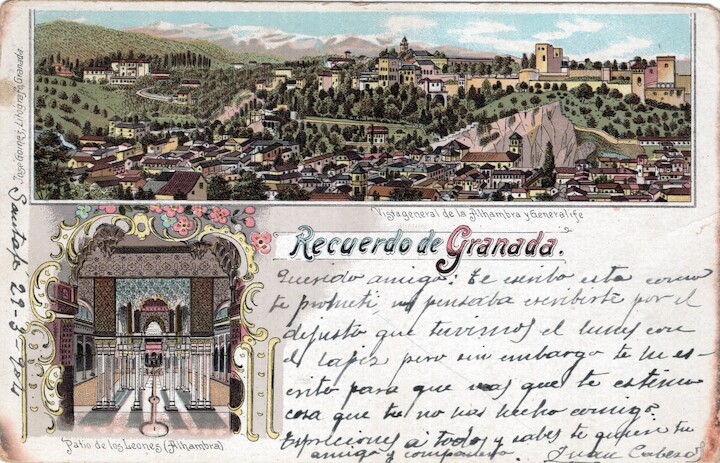 José Gomez, Litógrafo, Granada
Vista general de la Alhambra y Generalife
Recuerdo de Granada.
Santafe 29-3-904
Querido amigo: Te escribo esta como
te prometi, no pensaba escribirte por el
disfusto que tuvimos el lunes con
el lapiz pero sin embargo te he es-
crito para que veas que te estimo
cosa que tu no has hecho conmigo.
Espreciones a todos y sabes te quiere tu
amigo y compañero Juan
Patio de los Leones (Alhambra)